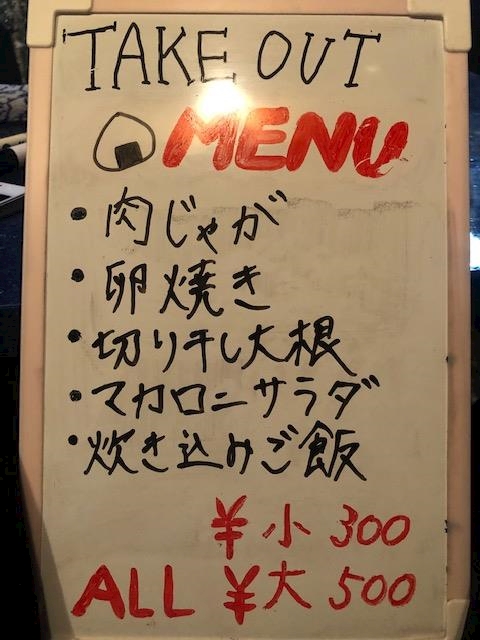 TAKE OUT
MENU
・肉じゃが
・卵焼き
・切り干し大根
・マカロニサラダ
・炊き込みご飯
¥小 300
ALL ¥大 500